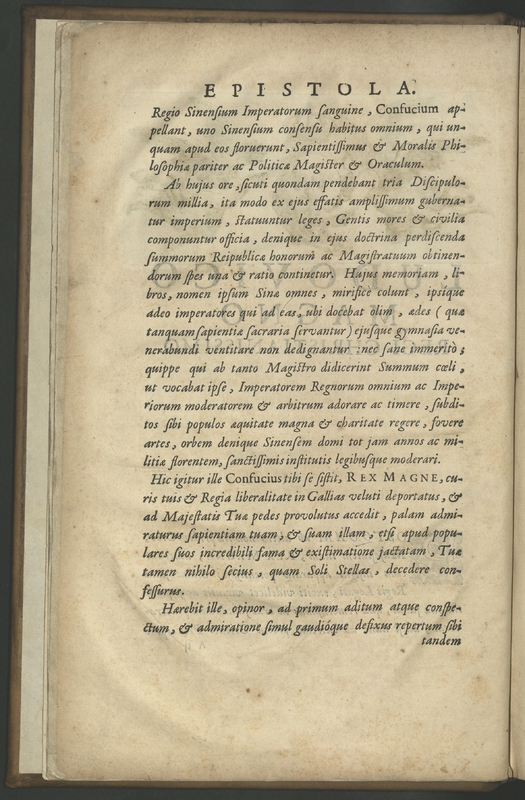 EPISTOLA.
Regio Sinensium Imperatorum ſanguine, Confucium ap-
pellant, uno Sinenſium conſenſu habitus omnium, qui un-
quam apud eos floruerunt, Sapientiſſimus & Moralis Phi-
loſophiæ pariter ac Politicæ Magiſter & Oraculum.
Ab hujus ore, ſicuti quondam pendebant tria Diſcipulo-
rum millia, ita modo ex ejus effatis ampliſſimum guberna-
tur imperium, ſtatuuntur leges, Gentis mores & civilia
componuntur officia, denique in ejus doctrina perdiſcenda
ſummorum Reipublicæ honorum ac Magiſtratuum obtinen-
dorum ſpes una & ratio continetur. Hujus memoriam, li-
bros, nomen ipſum Sinæ omnes, mirifice colunt, ipſique
adeo imperatores qui ad eas, ubi docebat olim, ædes (quæ
tanquam ſapientiæ ſacraria ſervantur) ejuſque gymnaſia ve-
nerabundi ventitare non dedignantur: nec ſane immerito;
quippe qui ab tanto Magiſtro didicerint Summum cœli,
ut vocabat ipſe, Imperatorem Regnorum omnium ac Impe-
riorum moderatorem & arbitrum adorare ac timere, ſubdi-
tos ſibi populos æquitate magna & charitate regere, fovere
artes, orbem denique Sinenſem domi tot jam annos ac mi-
litiæ florentem, ſanctiſſimis inſtitutis legibuſque moderari.
Hic igitur ille Confucius tibi ſe ſiſtit, REX MAGNE, cu-
ris tuis & Regia liberalitate in Gallias veluti deportatus, &
ad Majeſtatis Tuæ pedes provolutus accedit, palam admi-
raturus ſapientiam tuam, & ſuam illam, etſi apud popu-
lares ſuos incredibili fama & exiſtimatione jactatam, Tuæ
tamen nihilo ſecius, quam Soli Stellas, decedere con-
feſſurus.
Hærebit ille, opinor, ad primum aditum atque conſpe-
ctum, & admiratione ſimul gaudióque defixus repertum ſibi
tandem